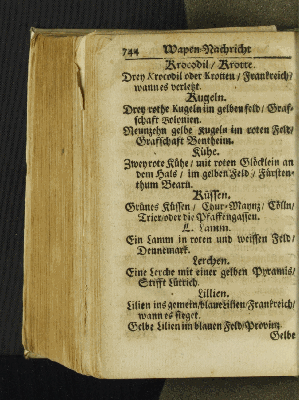 744 Wapen-Nachricht
Krocodil / Krotte.
Drey Krocodil oder Krotten / Franckreich /
wann es verletzt.
Kugeln.
Drey rothe Kugeln im gelben feld / Graf-
schafft Bolonien.
Neunzehn gelbe Kugeln im roten Feld /
Grafschafft Bentheim.
Kühe.
Zwey rote Kühe / mit roten Glöcklein an
dem Hals / im gelben Feld / Fürsten-
thum Bearn.
Küssen.
Grünes Küssen / Chur-Maynz / Cölln /
Trier / oder die Pfaffengassen.
L. Lamm.
Ein Lamm in roten und weissen Feld /
Dennemarck.
Lerchen.
Eine Lerche mit einer gelben Pyramis /
Stifft Lüttich.
Lilien.
Lilien ins gemein / blaue Lilien / Franckreich /
wann es sieget.
Gelbe Lilien im blauen Feld / Provintz.
Gelbe